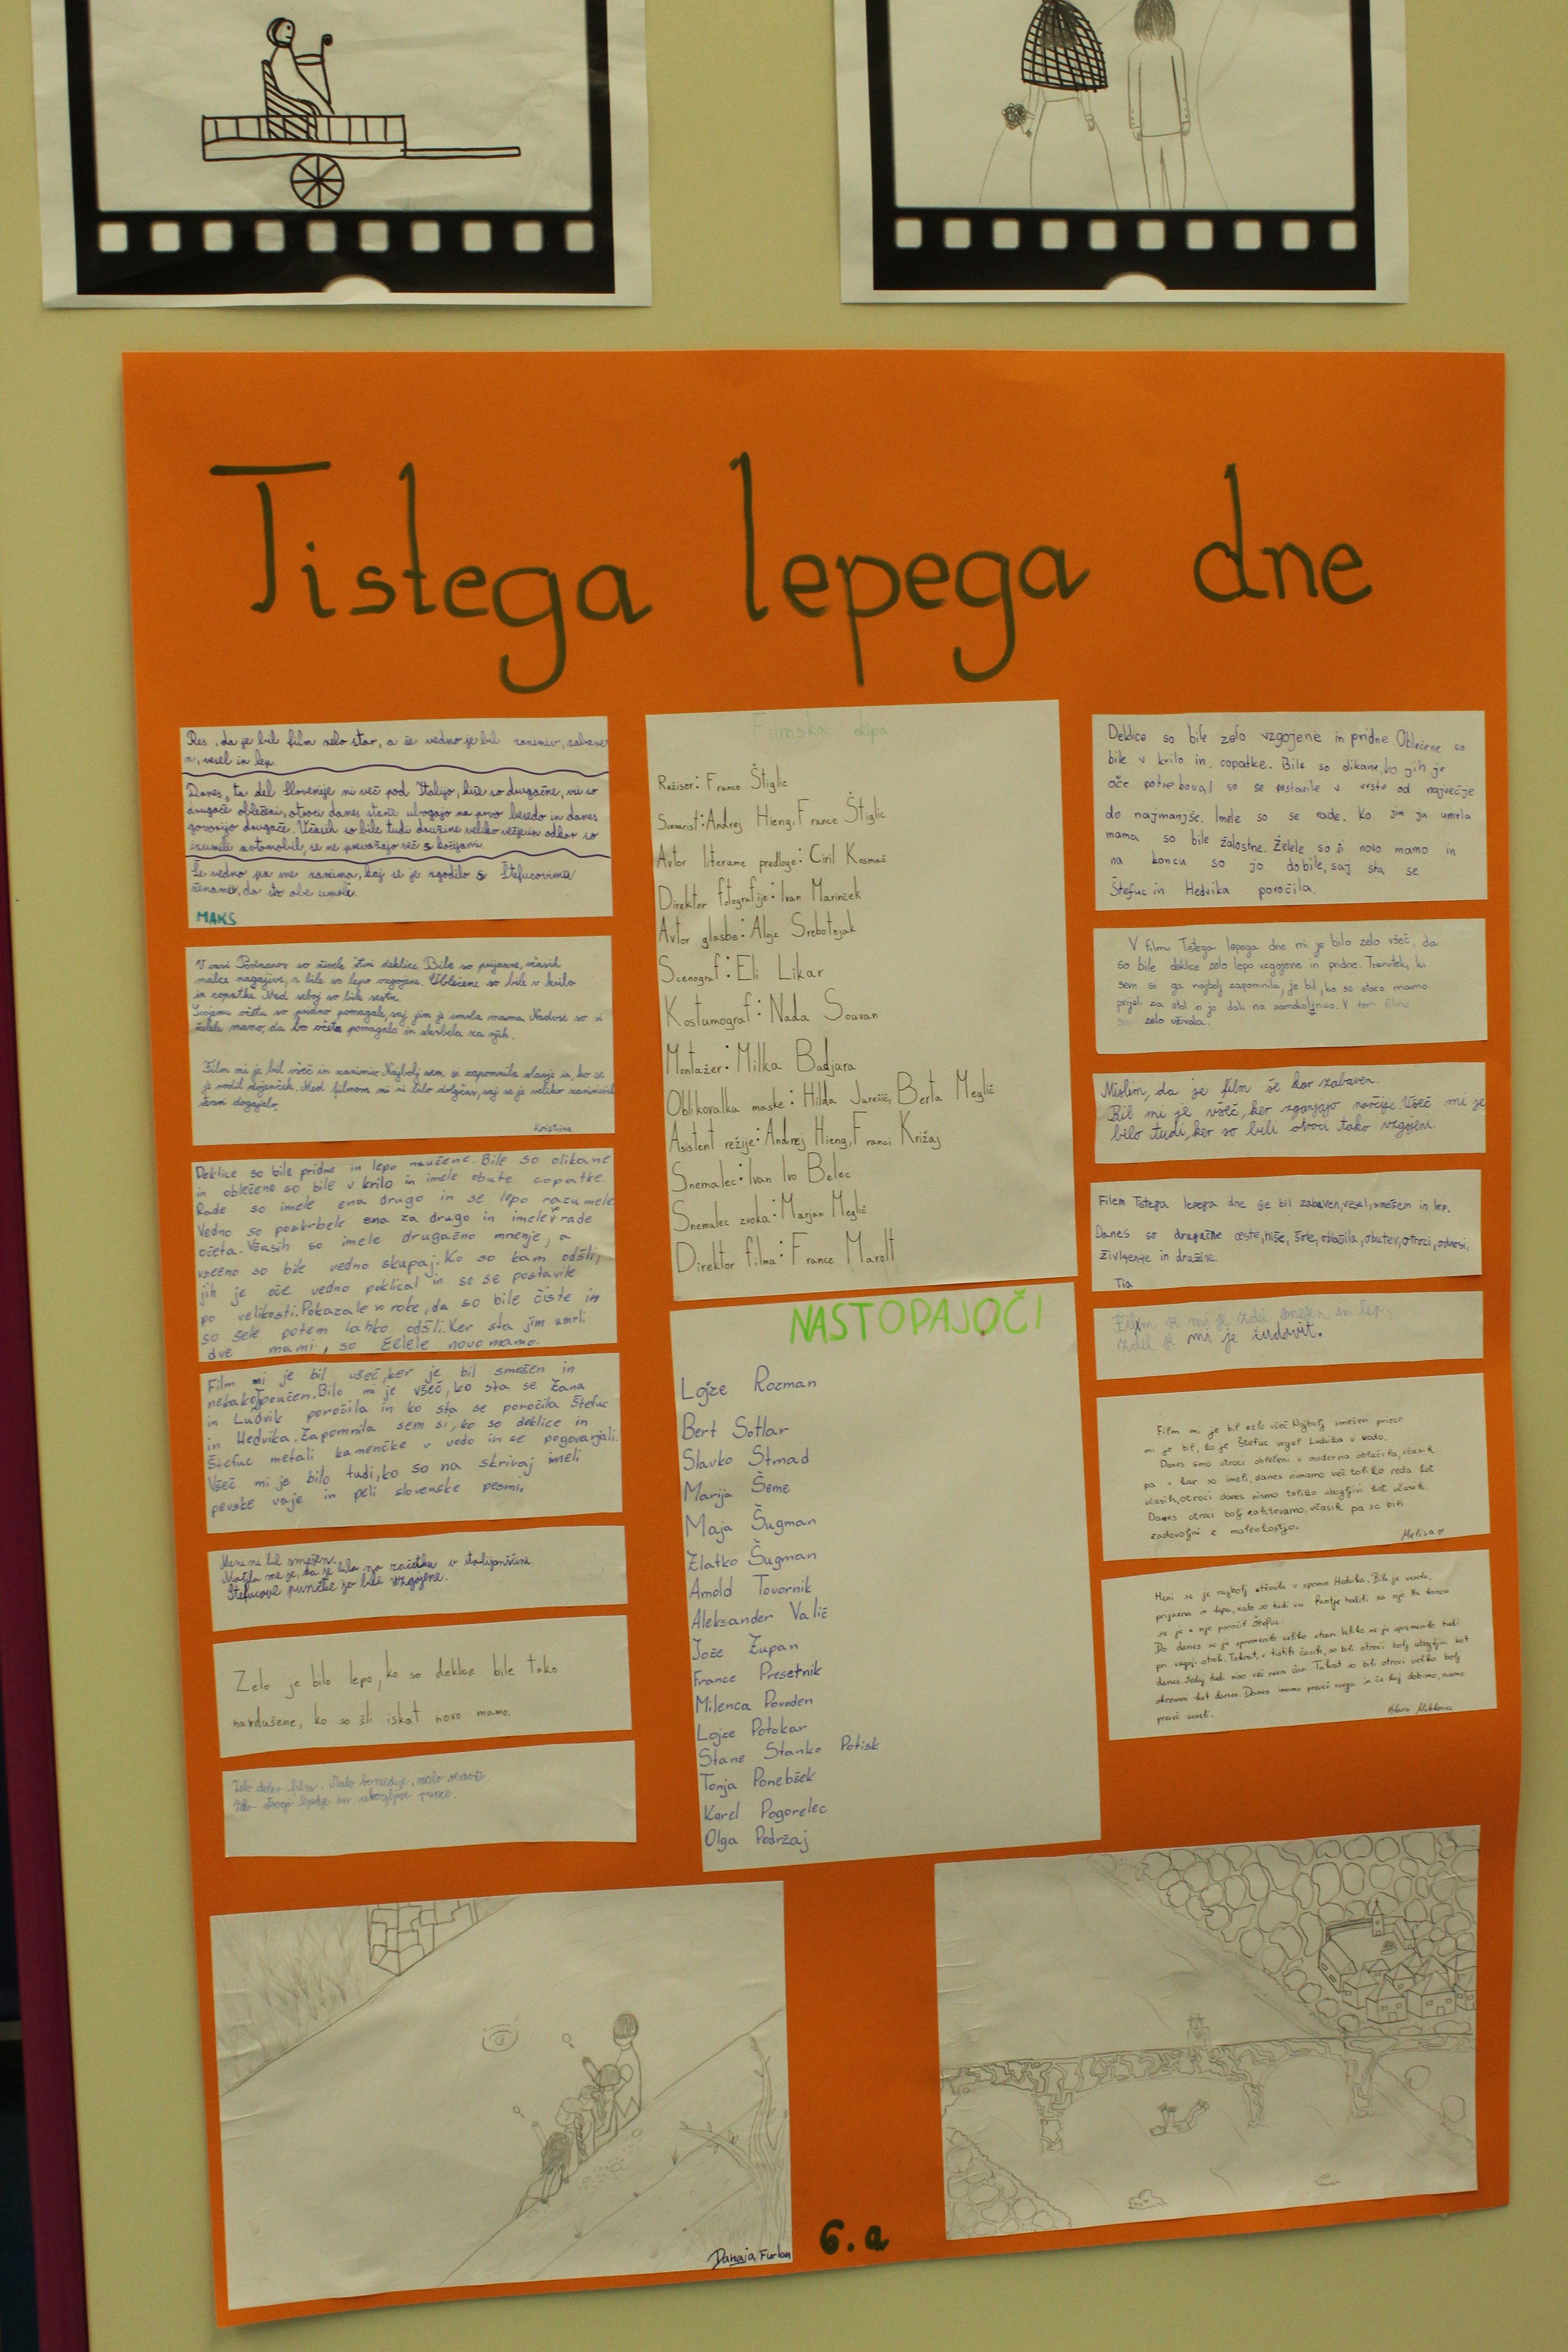 Tistega lepega dne
Res, da je bil film zelo star, a še vedno je bil zanimiv, zabave
n, vesel in lep.
Danes, ta del Slovenije ni več pod Italijo, hiše so drugačne, vsi so
drugače oblečeni, otroci danes starše ubogajo na prvo besedo in danes
govorijo drugače. Včasih so bile tudi družine veliko večje in odkar so
izumili avtomobil, se ne prevažajo več s kočijami.
Še vedno pa me zanima, kaj se je zgodilo s Štefucovima
ženama, da sto obe umrli.
MAKS
V vasi Podnanos so živele štiri deklice. Bile so prijazne, včasih
malce nagajive, a bile so lepo vzgojene. Oblečene so bile v krilo
in copatke. Med seboj so bile sestre.
Svojemu očetu so pridno pomagale, saj jim je umrla mama. Nadvse so si
želele mamo, da bo očeta pomagala in skrbela za njih.
Film mi je bil všeč in zanimiv. Najbolj sem si zapomnila slavje in, ko se
je rodil dojenček. Med filmom mi ni bilo dolgčas, saj se je veliko zanimivih
stvari dogajalo.
Kristina
Deklice so bile pridne in lepo naučene. Bile so olikane
in oblečene so bile v krilo in imele obute copatke.
Rade so imele ena drugo in se lepo razumele.
Vedno so poskrbele ena za drugo in imele rade
očeta. Včasih so imele drugačno mnenje, a
vseeno so bile vedno skupaj. Ko so kam odšli,
jih je oče vedno poklical in so se postavile
po velikosti. Pokazale so roke, da so bile čiste in
so šele potem lahko odšli. Ker sta jim umrli
dve mami, so želele novo mamo.
Film mi je bil všeč, ker je bil smešen in
nekako poučen. Bilo mi je všeč, ko sta se Žana
in Ludvik poročila in ko sta se poročila Štefuc
in Hedvika. Zapomnila sem si, ko so deklice in
Štefuc metali kamenčke v vodo in se pogovarjali.
Všeč mi je bilo tudi, ko so na skrivaj imeli
pevske vaje in peli slovenske pesmi.
Meni ni bil smešen.
Motilo me je, da je bila na začetku v italijanščini.
Štefucove punčke so bile vzgojene.
Zelo je bilo lepo, ko so deklce bile tako
navdušene, ko so šli iskat novo mamo.
Zelo dober film. Malo komedije, malo
Zelo strogi ljudje in ubogljive
Filmska ekipa
Režiser: France Štiglic
Scenarist: Andrej Hieng, France Štiglic
Avtor literarne predloge: Ciril Kosmač
Direktor fotografije: Ivan Marinček
Avtor glasbe: Alojz Srebotnjak
Scenograf: Eli Likar
Kostumograf: Nada Souvan
Montažer: Milka Badjura
Oblikovalka maske: Hilda Jurečič, Berta Meglič
Asistent režije: Andrej Hieng, Franci Križaj
Snemalec: Ivan Ivo Belec
Snemalec zvoka: Marjan Meglič
Direktor filma: France Marolt
NASTOPAJOČI
Lojze Rozman
Bert Sotlar
Slavko Strnad
Marija Šeme
Maja Šugman
Zlatko Šugman
Arnold Tovornik
Aleksander Valič
Jože Zupan
France Presetnik
Milenca Povoden
Lojze Potokar
Stane Stanko Potisk
Tonja Ponebšek
Karel Pogorelec
Olga Podržaj
Deklice so bile zelo vzgojene in pridne. Oblečene so
bile v krilo in copatke. Bile so olikane, ko jih je
oče potreboval so se postavile v vrsto od največje
do najmanjše. Imele so se rade. Ko jim je umrla
mama, so bile žalostne. Želele so si novo mamo in
na koncu so jo dobile, saj sta se
Štefuc in Hedvika poročila.
V filmu Tistega lepega dne mi je bilo zelo všeč, da
so bile deklice zelo lepo vzgojene in pridne. Trenutek, ki
sem si ga najbolj zapomnila, je bil, ko so staro mamo
prijeli za stol in jo dali na samokolnico. V tem filmu
zelo uživala.
Mislim, da je film še kar zabaven.
Bil mi je všeč, ker zganjajo norčije. Všeč mi je
bilo tudi, ker so bili otroci tako vzgojeni.
Filem Tistega lepega dne je bil zabaven, vesel, smešem in lep.
Danes so drugačne ceste, hiše, šole, oblačila, obutev, otroci, odnosi,
življenje in družine.
Tia
Film se mi je zdel smešen in lep,
zdel se mi je čudovit.
Film mi je bil zelo všeč. Najbolj smešen prizor
mi je bil, ko je Štefuc vrgel Ludvika v vodo.
Danes smo otroci oblečeni v moderna oblačila, včasih
pa v kar so imeli, danes nimamo več toliko reda kot
včasih, otroci danes nismo toliko ubogljivi kot včasih.
Danes otroci bolj zahtevamo, včasih pa so bili
zadovoljni z malenkostjo.
Melisa
Meni se je najbolj vtisnila v spomin Hedvika. Bila je vesela,
prijazna in lepa, zato so tudi vsi fantje hodili za njo. Na koncu
se je z njo poročil Štefuc.
Do danes se je spremenilo veliko stvari. Veliko se je spremenilo tudi
pri vzgoji otrok. Takrat, v tistih časih, so bili otroci bolj ubogljivi kot
danes.
skromni kot danes. Danes imamo preveč vsega in če kaj dobimo, nismo
preveč veseli.
Danaja Furlan
6.a